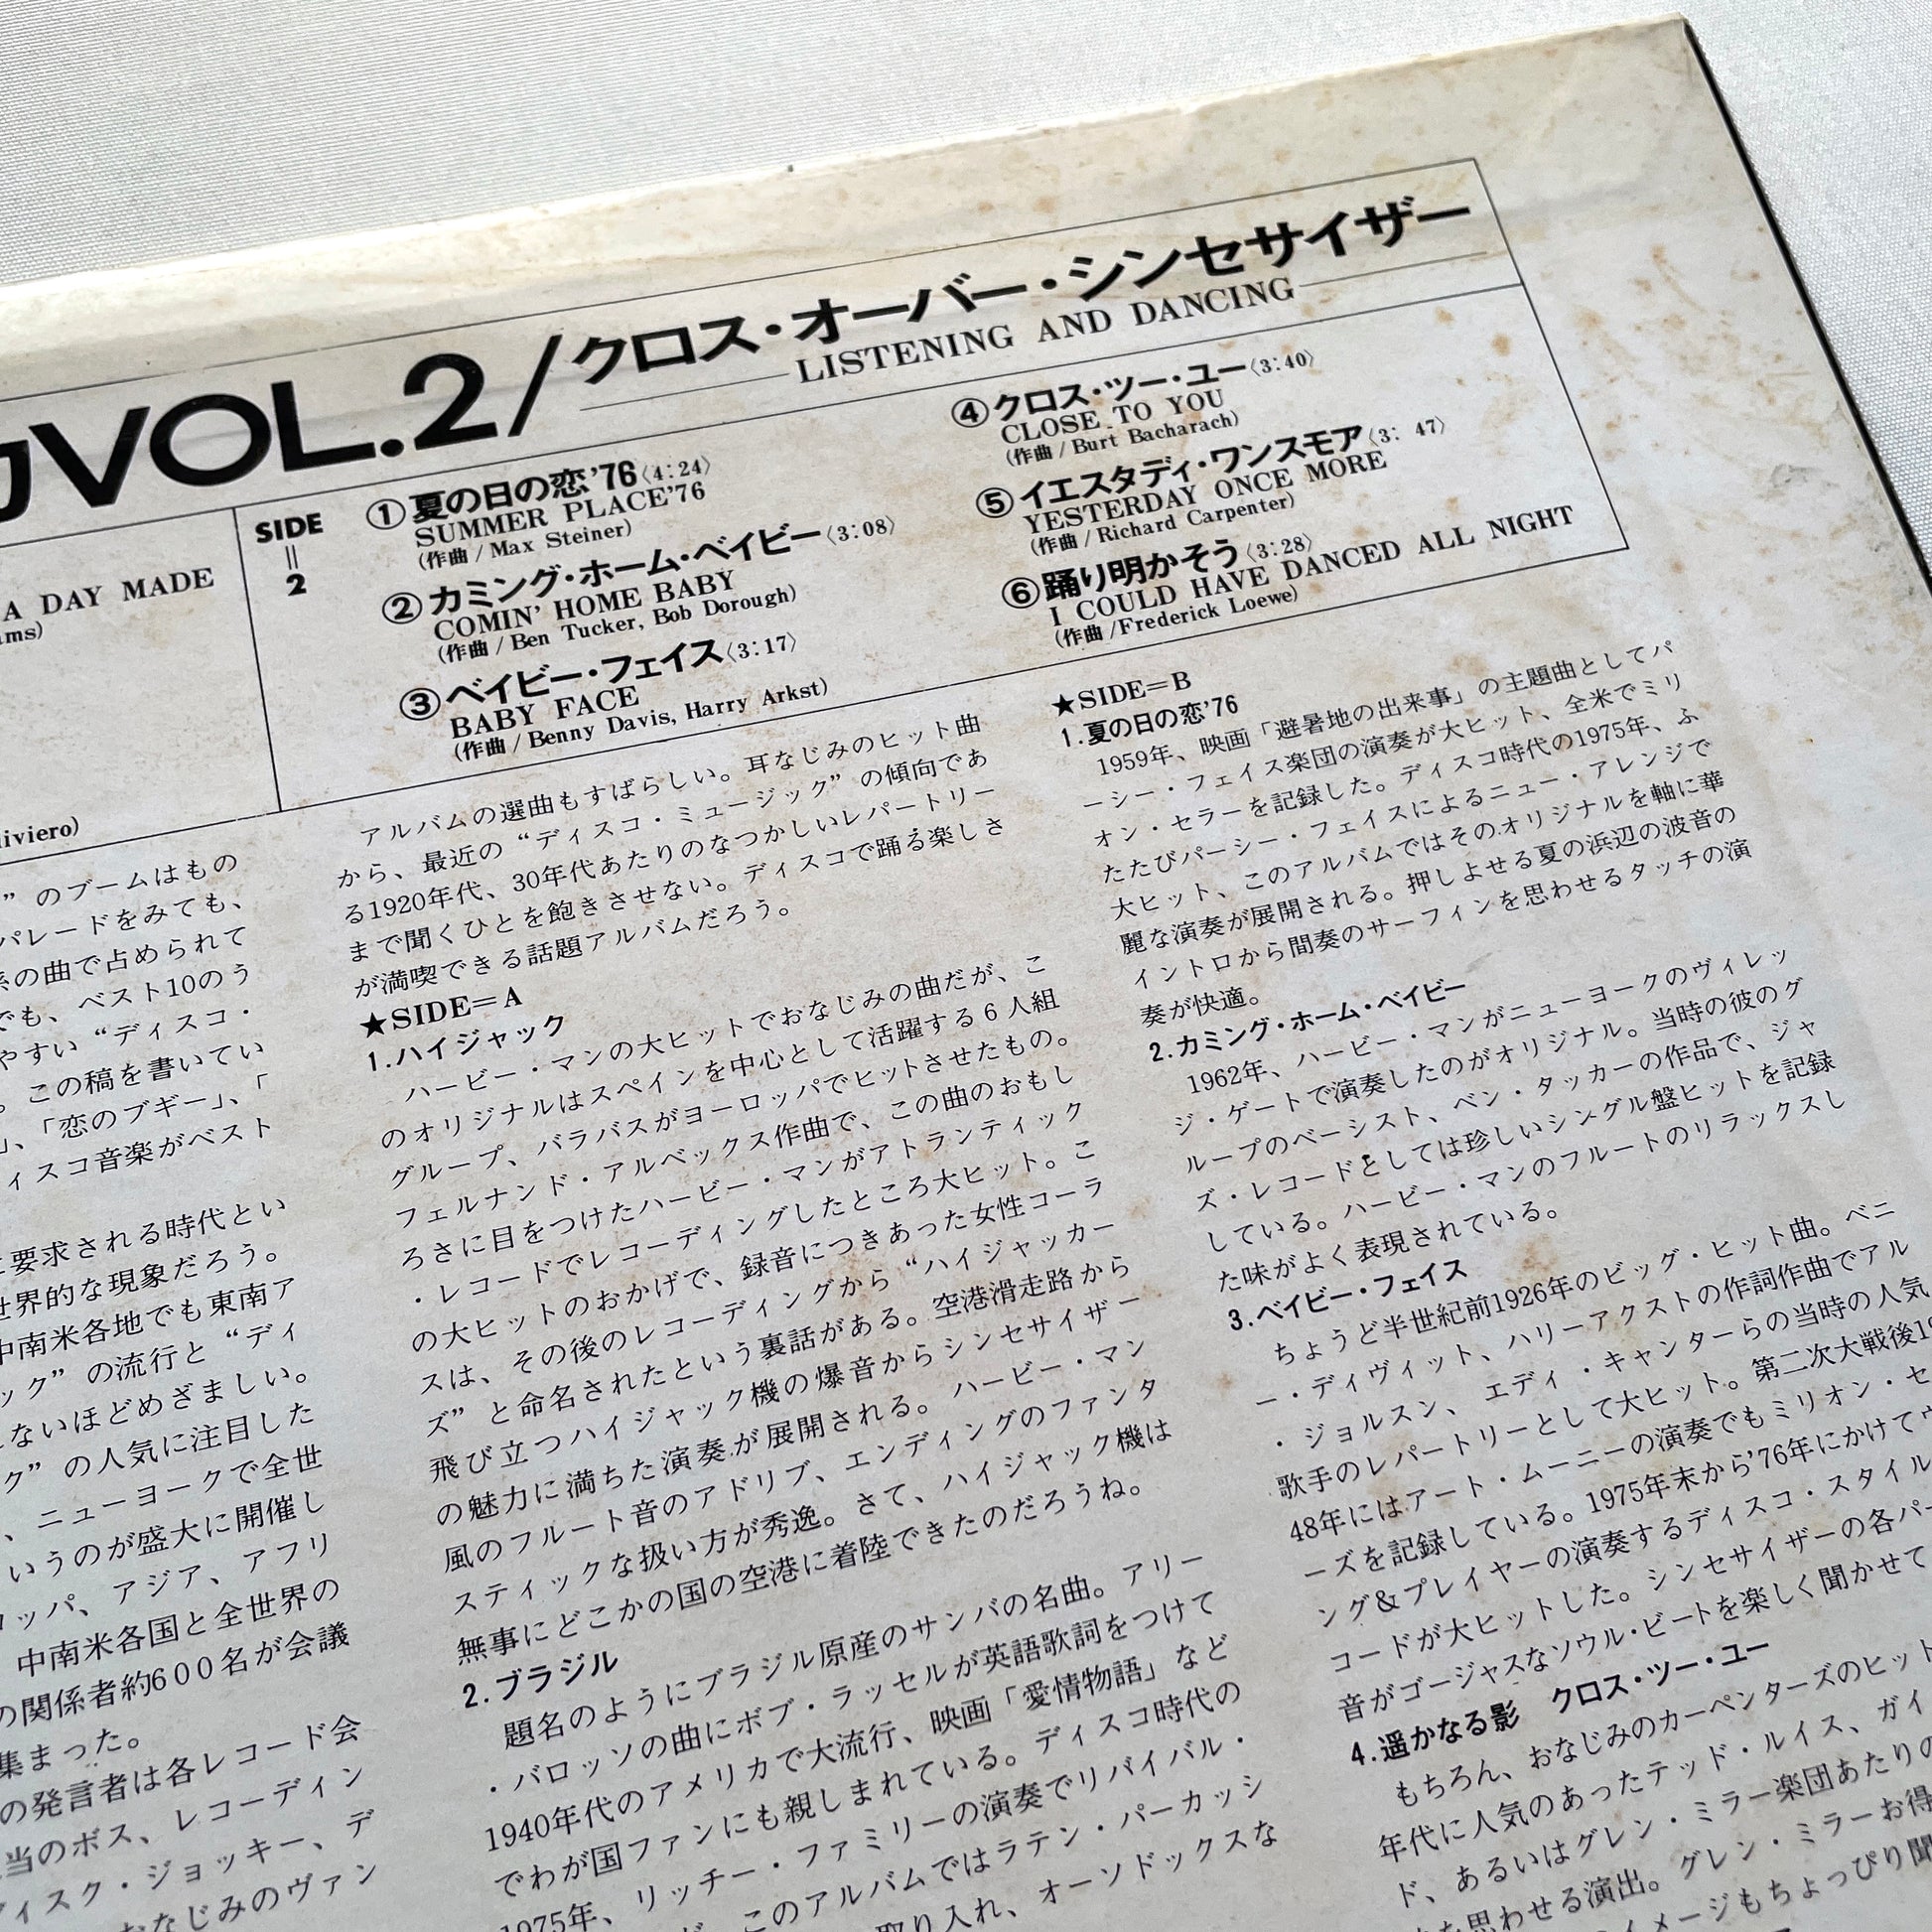 VOL.2/クロス・オーバー・シンセサイザー
LISTENING AND DANCING
A DAY MADE
SIDE
=
2
①夏の日の恋'76〈4:24〉
SUMMER PLACE'76
(作曲/Max Steiner)
②カミング・ホーム・ベイビー〈3:08〉
COMIN' HOME BABY
(作曲/Ben Tucker, Bob Dorough)
③ベイビー・フェイス〈3:17〉
BABY FACE
(作曲/Benny Davis, Harry Arkst)
④クロス・ツー・ユー〈3:40〉
CLOSE TO YOU
(作曲/Burt Bacharach)
⑤イエスタディ・ワンスモア〈3:47〉
YESTERDAY ONCE MORE
(作曲/Richard Carpenter)
⑥踊り明かそう〈3:28〉
I COULD HAVE DANCED ALL NIGHT
(作曲/Frederick Loewe)
” のブームはもの
パレードをみても、
系の曲で占められて
でも、ベスト10のう
やすい “ディスコ・
。この稿を書いてい
」、「恋のブギー」、「
ィスコ音楽がベスト
要求される時代とい
世界的な現象だろう。
中南米各地でも東南ア
ック” の流行と “ディ
ないほどめざましい。
ク” の人気に注目した
、ニューヨークで全世
いうのが盛大に開催し
ロッパ、アジア、アフリ
中南米各国と全世界の
の関係者約600名が会議
集まった。
の発言者は各レコード会
当のボス、レコーディン
ディスク・ジョッキー、デ
おなじみのヴァン
アルバムの選曲もすばらしい。耳なじみのヒット曲
から、最近の “ディスコ・ミュージック” の傾向であ
る1920年代、30年代あたりのなつかしいレパートリー
まで聞くひとを飽きさせない。ディスコで踊る楽しさ
が満喫できる話題アルバムだろう。
★SIDE=A
1.ハイジャック
ハービー・マンの大ヒットでおなじみの曲だが、こ
のオリジナルはスペインを中心として活躍する6人組
グループ、バラバスがヨーロッパでヒットさせたもの。
フェルナンド・アルベックス作曲で、この曲のおもし
ろさに目をつけたハービー・マンがアトランティック
・レコードでレコーディングしたところ大ヒット。こ
の大ヒットのおかげで、録音につきあった女性コーラ
スは、その後のレコーディングから “ハイジャッカー
ズ” と命名されたという裏話がある。空港滑走路から
飛び立つハイジャック機の爆音からシンセサイザー
の魅力に満ちた演奏が展開される。ハービー・マン
風のフルート音のアドリブ、エンディングのファンタ
スティックな扱い方が秀逸。さて、ハイジャック機は
無事にどこかの国の空港に着陸できたのだろうね。
2.ブラジル
題名のようにブラジル原産のサンバの名曲。アリー
・バロッソの曲にボブ・ラッセルが英語歌詞をつけて
1940年代のアメリカで大流行、映画「愛情物語」など
でわが国ファンにも親しまれている。ディスコ時代の
1975年、リッチー・ファミリーの演奏でリバイバル・
このアルバムではラテン・パーカッシ
取り入れ、オーソドックスな
★SIDE=B
1.夏の日の恋'76
1959年、映画「避暑地の出来事」の主題曲としてパ
ーシー・フェイス楽団の演奏が大ヒット、全米でミリ
オン・セラーを記録した。ディスコ時代の1975年、ふ
たたびパーシー・フェイスによるニュー・アレンジで
大ヒット、このアルバムではそのオリジナルを軸に華
麗な演奏が展開される。押しよせる夏の浜辺の波音の
イントロから間奏のサーフィンを思わせるタッチの演
奏が快適。
2.カミング・ホーム・ベイビー
1962年、ハービー・マンがニューヨークのヴィレッ
ジ・ゲートで演奏したのがオリジナル。当時の彼のグ
ループのベーシスト、ベン・タッカーの作品で、ジャ
ズ・レコードとしては珍しいシングル盤ヒットを記録
している。ハービー・マンのフルートのリラックスし
た味がよく表現されている。
3.ベイビー・フェイス
ちょうど半世紀前1926年のビッグ・ヒット曲。ベニ
ー・ディヴィット、ハリーアクストの作詞作曲でアル
・ジョルスン、エディ・キャンターらの当時の人気
歌手のレパートリーとして大ヒット。第二次大戦後19
48年にはアート・ムーニーの演奏でもミリオン・セ
ーズを記録している。1975年末から'76年にかけてウ
ング&プレイヤーの演奏するディスコ・スタイル
コードが大ヒットした。シンセサイザーの各パー
音がゴージャスなソウル・ビートを楽しく聞かせて
4.遥かなる影　クロス・ツー・ユー
もちろん、おなじみのカーペンターズのヒット
年代に人気のあったテッド・ルイス、ガイ
ド、あるいはグレン・ミラー楽団あたりの
を思わせる演出。グレン・ミラーお得
イメージもちょっぴり聞